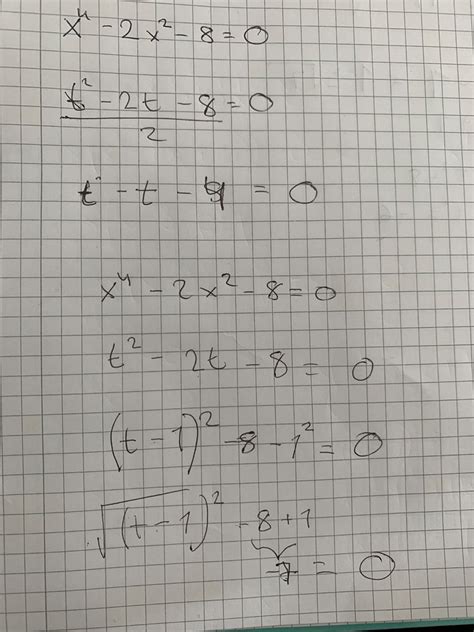 x⁴ - 2x² - 8 = 0
t² - 2t - 8 = 0
2
t - t - 4 = 0
x⁴ - 2x² - 8 = 0
t² - 2t - 8 = 0
(t - 1)² - 8 - 1² = 0
√(t - 1)² - 8 + 1
-7 = 0